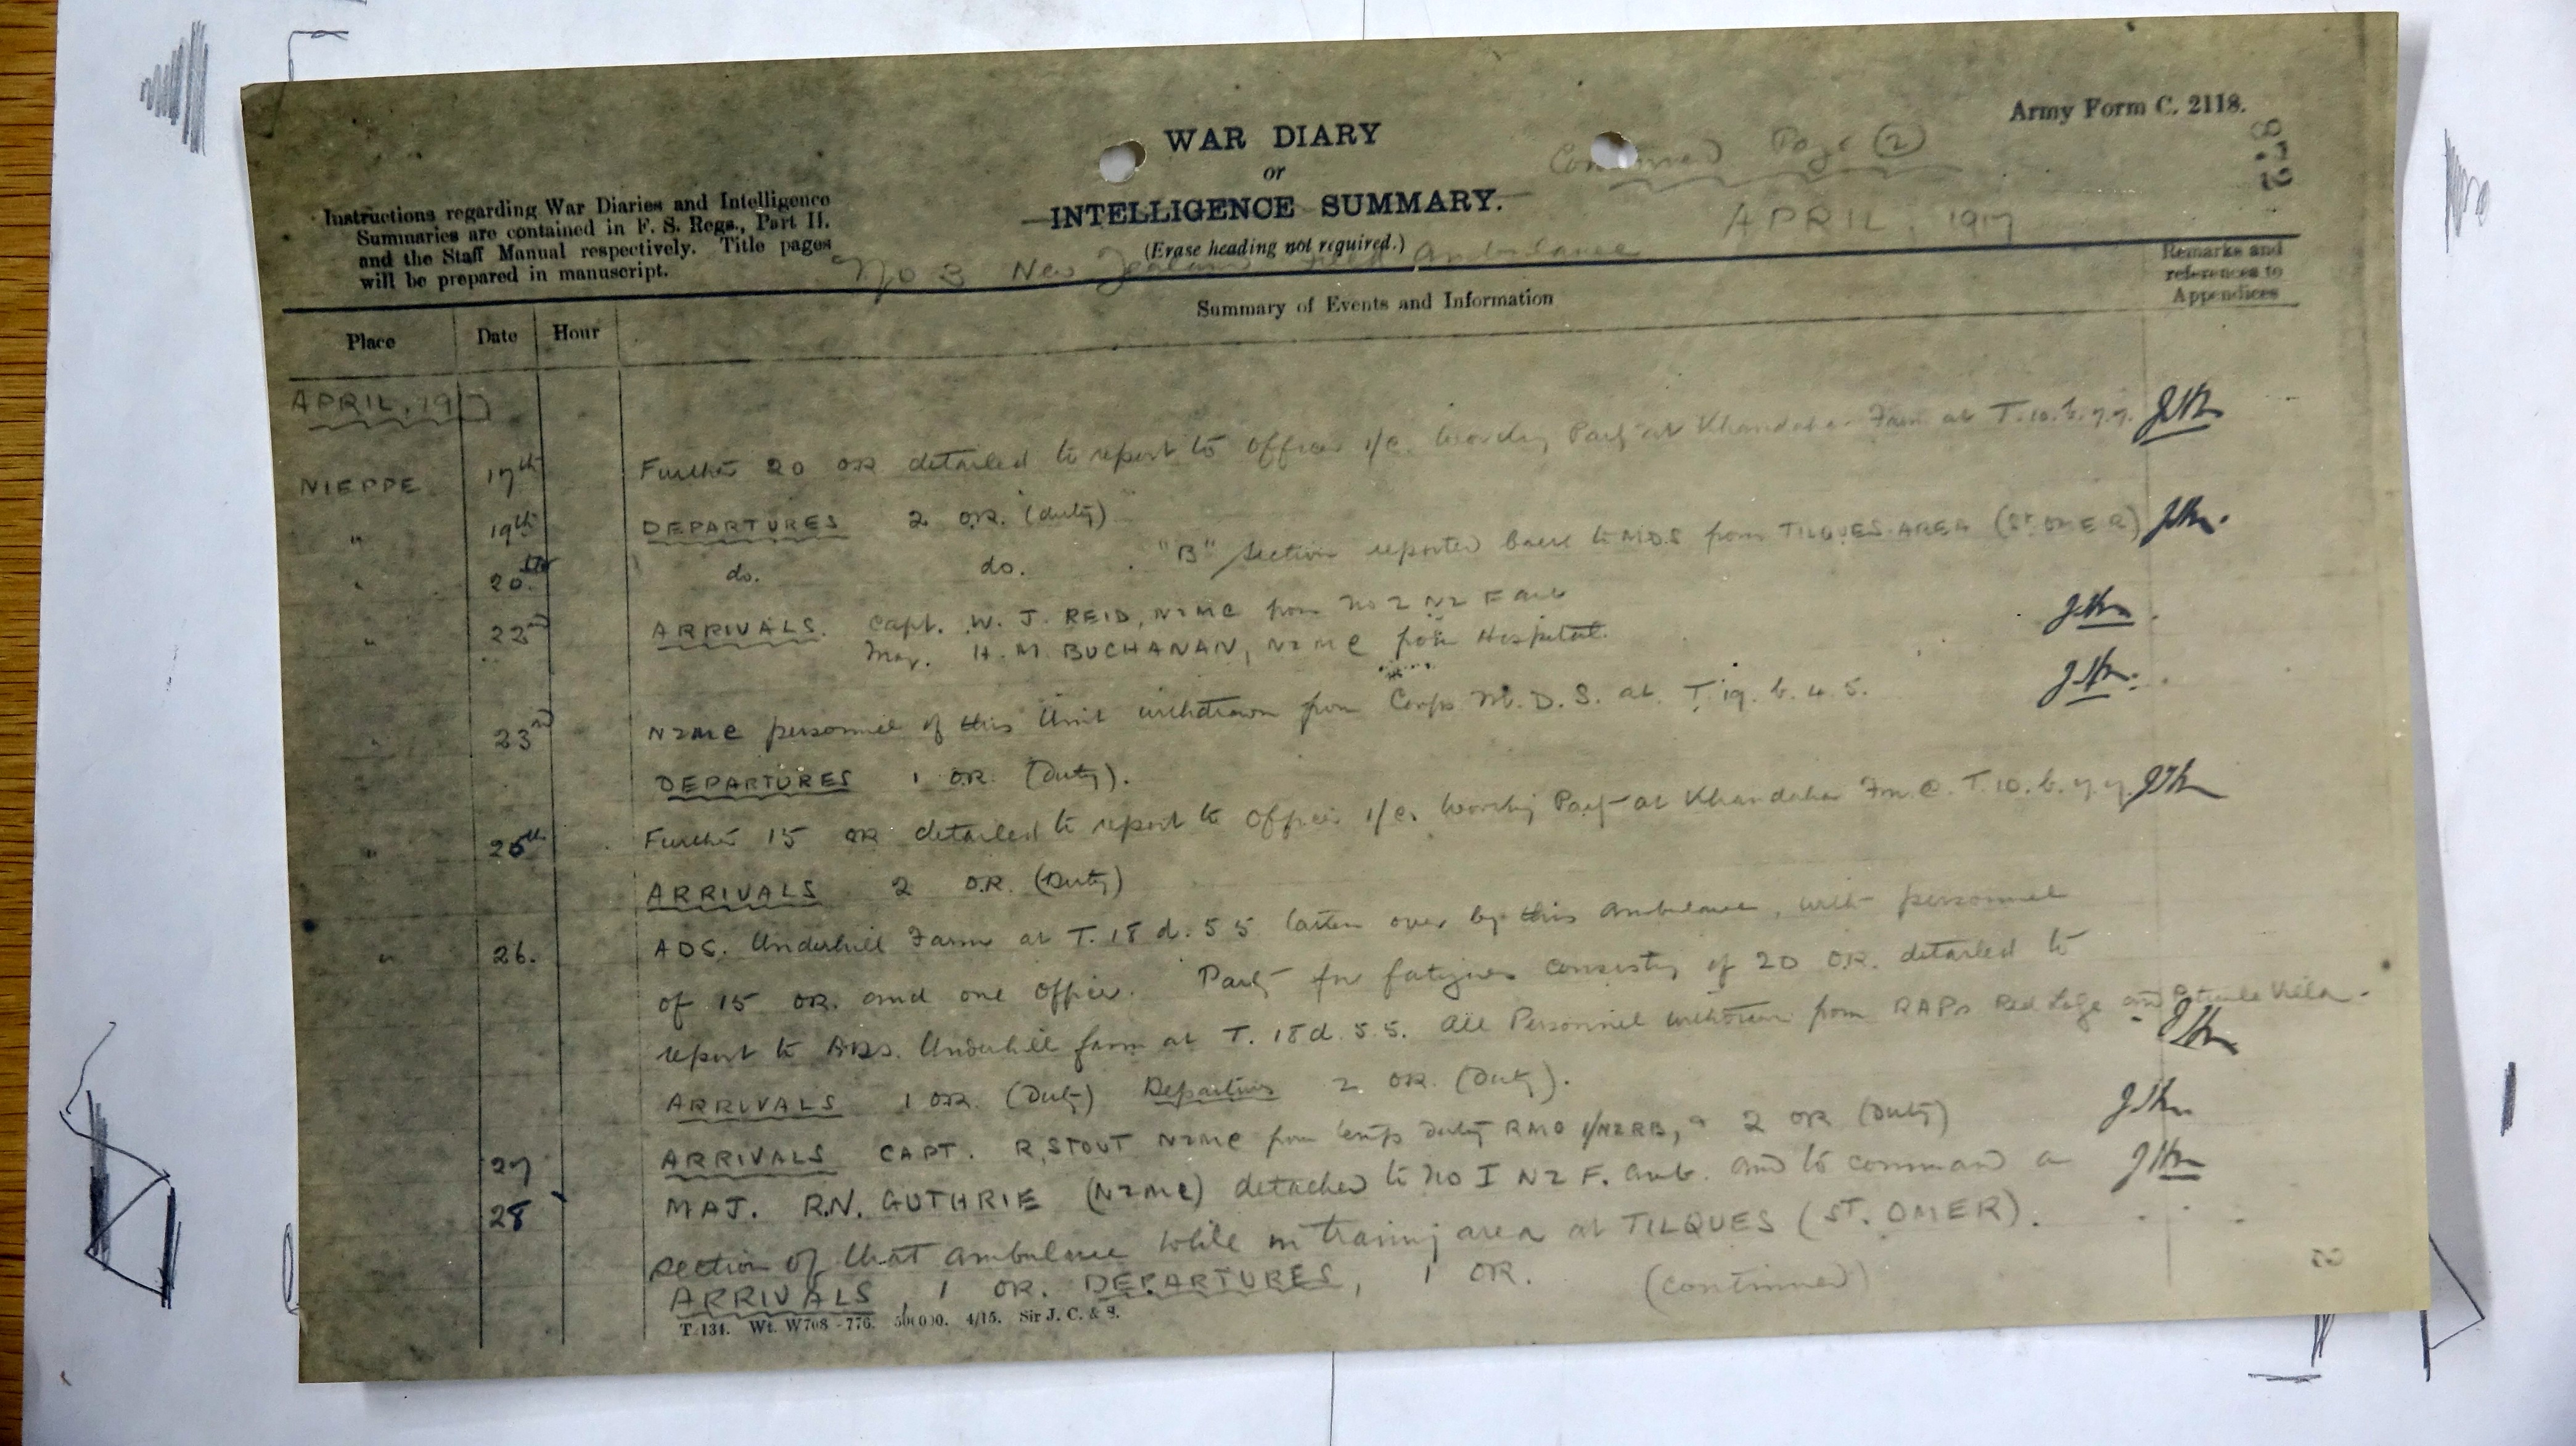 Army Form C. 2118.
WAR DIARY
or
INTELLIGENCE SUMMARY.
(Erase heading not required.)
Page 2
APRIL, 1917
Instructions regarding War Diaries and Intelligence
Summaries are contained in F. S. Regs., Part II.
and the Staff Manual respectively. Title pages
will be prepared in manuscript.
No 3 New Zealand Field Ambulance
Remarks and
references to
Appendices
Summary of Events and Information
Place Date Hour
APRIL, 1917
NIEPPE 17th Further 20 OR detailed to report to Officer i/c. Working Party at Khandahar Farm at T.10.b.7.7.
" 19th DEPARTURES 2 O.R. (duty)
" 20th do. do. "B" Section reported back to M.D.S from TILQUES AREA (ST. OMER)
" 22nd ARRIVALS. Capt. W. J. REID, NZMC from No 2 NZ F amb
Maj. H. M. BUCHANAN, NZMC from Hospital.
" 23rd NZMC personnel of this Unit withdrawn from Corps M. D. S. at T.19. b. 4. 5.
DEPARTURES 1 OR. (Duty).
" 25th Further 15 OR detailed to report to Officer i/c. Working Party at Khandahar Fm @ T. 10. b. 7. 7.
ARRIVALS 2 O.R. (Duty)
" 26. ADS. Underhill Farm at T. 18 d. 5 5. taken over by this Ambulance, with personnel
of 15 OR. and one Officer. Party for fatigues consisting of 20 O.R. detailed to
report to ADS. Underhill farm at T. 18 d. 5. 5. All Personnel withdrawn from RAPs Red Lodge and Villa.
ARRIVALS 1 OR. (Duty) Departures 2 OR. (Duty).
27 ARRIVALS CAPT. R, STOUT NZMC from temp duty RMO 1/NZRB, & 2 OR (Duty)
28 MAJ. R.N. GUTHRIE (NZMC) detached to No I NZ F. Amb. and to command a
section of that ambulance while in training area at TILQUES (ST. OMER).
ARRIVALS, 1 OR. DEPARTURES, 1 OR. (continued)
T.134. Wt. W708-776. 500000. 4/15. Sir J. C. & S.